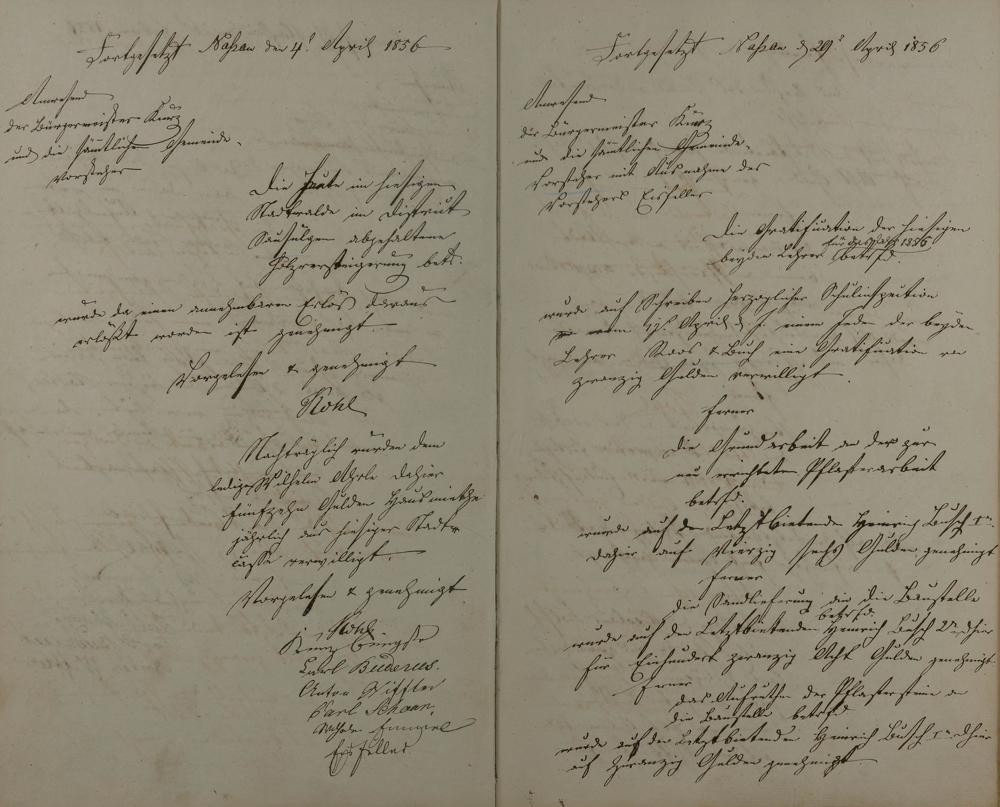 Fortgesetzt Naßau den 4t April 1856
Anwesend
der Bürgermeister Kunz
und die sämtlichen Gemeinde-
Vorsteher
Die heute im hiesigen
Stadtwalde im District
abgehaltene
Holzversteigerung betr:
wurde da einen annehmbaren Erlös daraus
erlößt worden ist genehmigt.
Vorgelesen & genehmigt
Kohl
Nachträglich wurden dem
ledigen Wilhelm dahier
fünfzehn Gulden Hausmiethe
jährlich aus hiesiger Stadt-
casse verwilligt.
Vorgelesen & genehmigt
Kohl
Kunz
Carl Buderus.
Anton
Carl Schaan
Eisfeller
Fortgesetzt Naßau d 29t April 1856
Anwesend
der Bürgermeister Kunz
und die sämtlichen Gemeinde-
Vorsteher mit Ausnahme des
Vorstehers Eisfeller
Die Gratification der hiesigen
für das Jahr 1856
beyden Lehrer betrfd.
wurde auf Schreiben Herzoglicher Schulinspection
vom April d. J. einem Jeden der beyden
Lehrer Roos & Buch eine Gratification von
zwanzig Gulden verwilligt.
ferner
Die Grundarbeit an der zur
neu errichteten Pflasterarbeit
betrfd.
wurde auf den Letztbietenden Heinrich Busch
dahier auf Vierzig sechs Gulden genehmigt
ferner
die Sandlieferung an die Baustelle
betrfd.
wurde auf den Letztbietenden Heinrich Busch dahier
für Einhundert zwanzig Acht Gulden genehmigt.
ferner
das der Pflastersteine an
die Baustelle betrfd
wurde auf den Letztbietenden Heinrich Busch dahier
auf zwanzig Gulden genehmigt